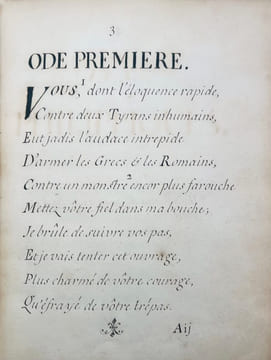 3
ODE PREMIERE.
Vous,¹ dont l'éloquence rapide,
Contre deux Tyrans inhumains,
Eut jadis l'audace intrepide
D'armer les Grecs & les Romains,
Contre un monstre² encor plus farouche
Mettez vôtre fiel dans ma bouche;
Je brûle de suivre vos pas,
Et je vais tenter cet ouvrage,
Plus charmé de vôtre courage,
Qu'éfrayé de vôtre trépas.
Aij